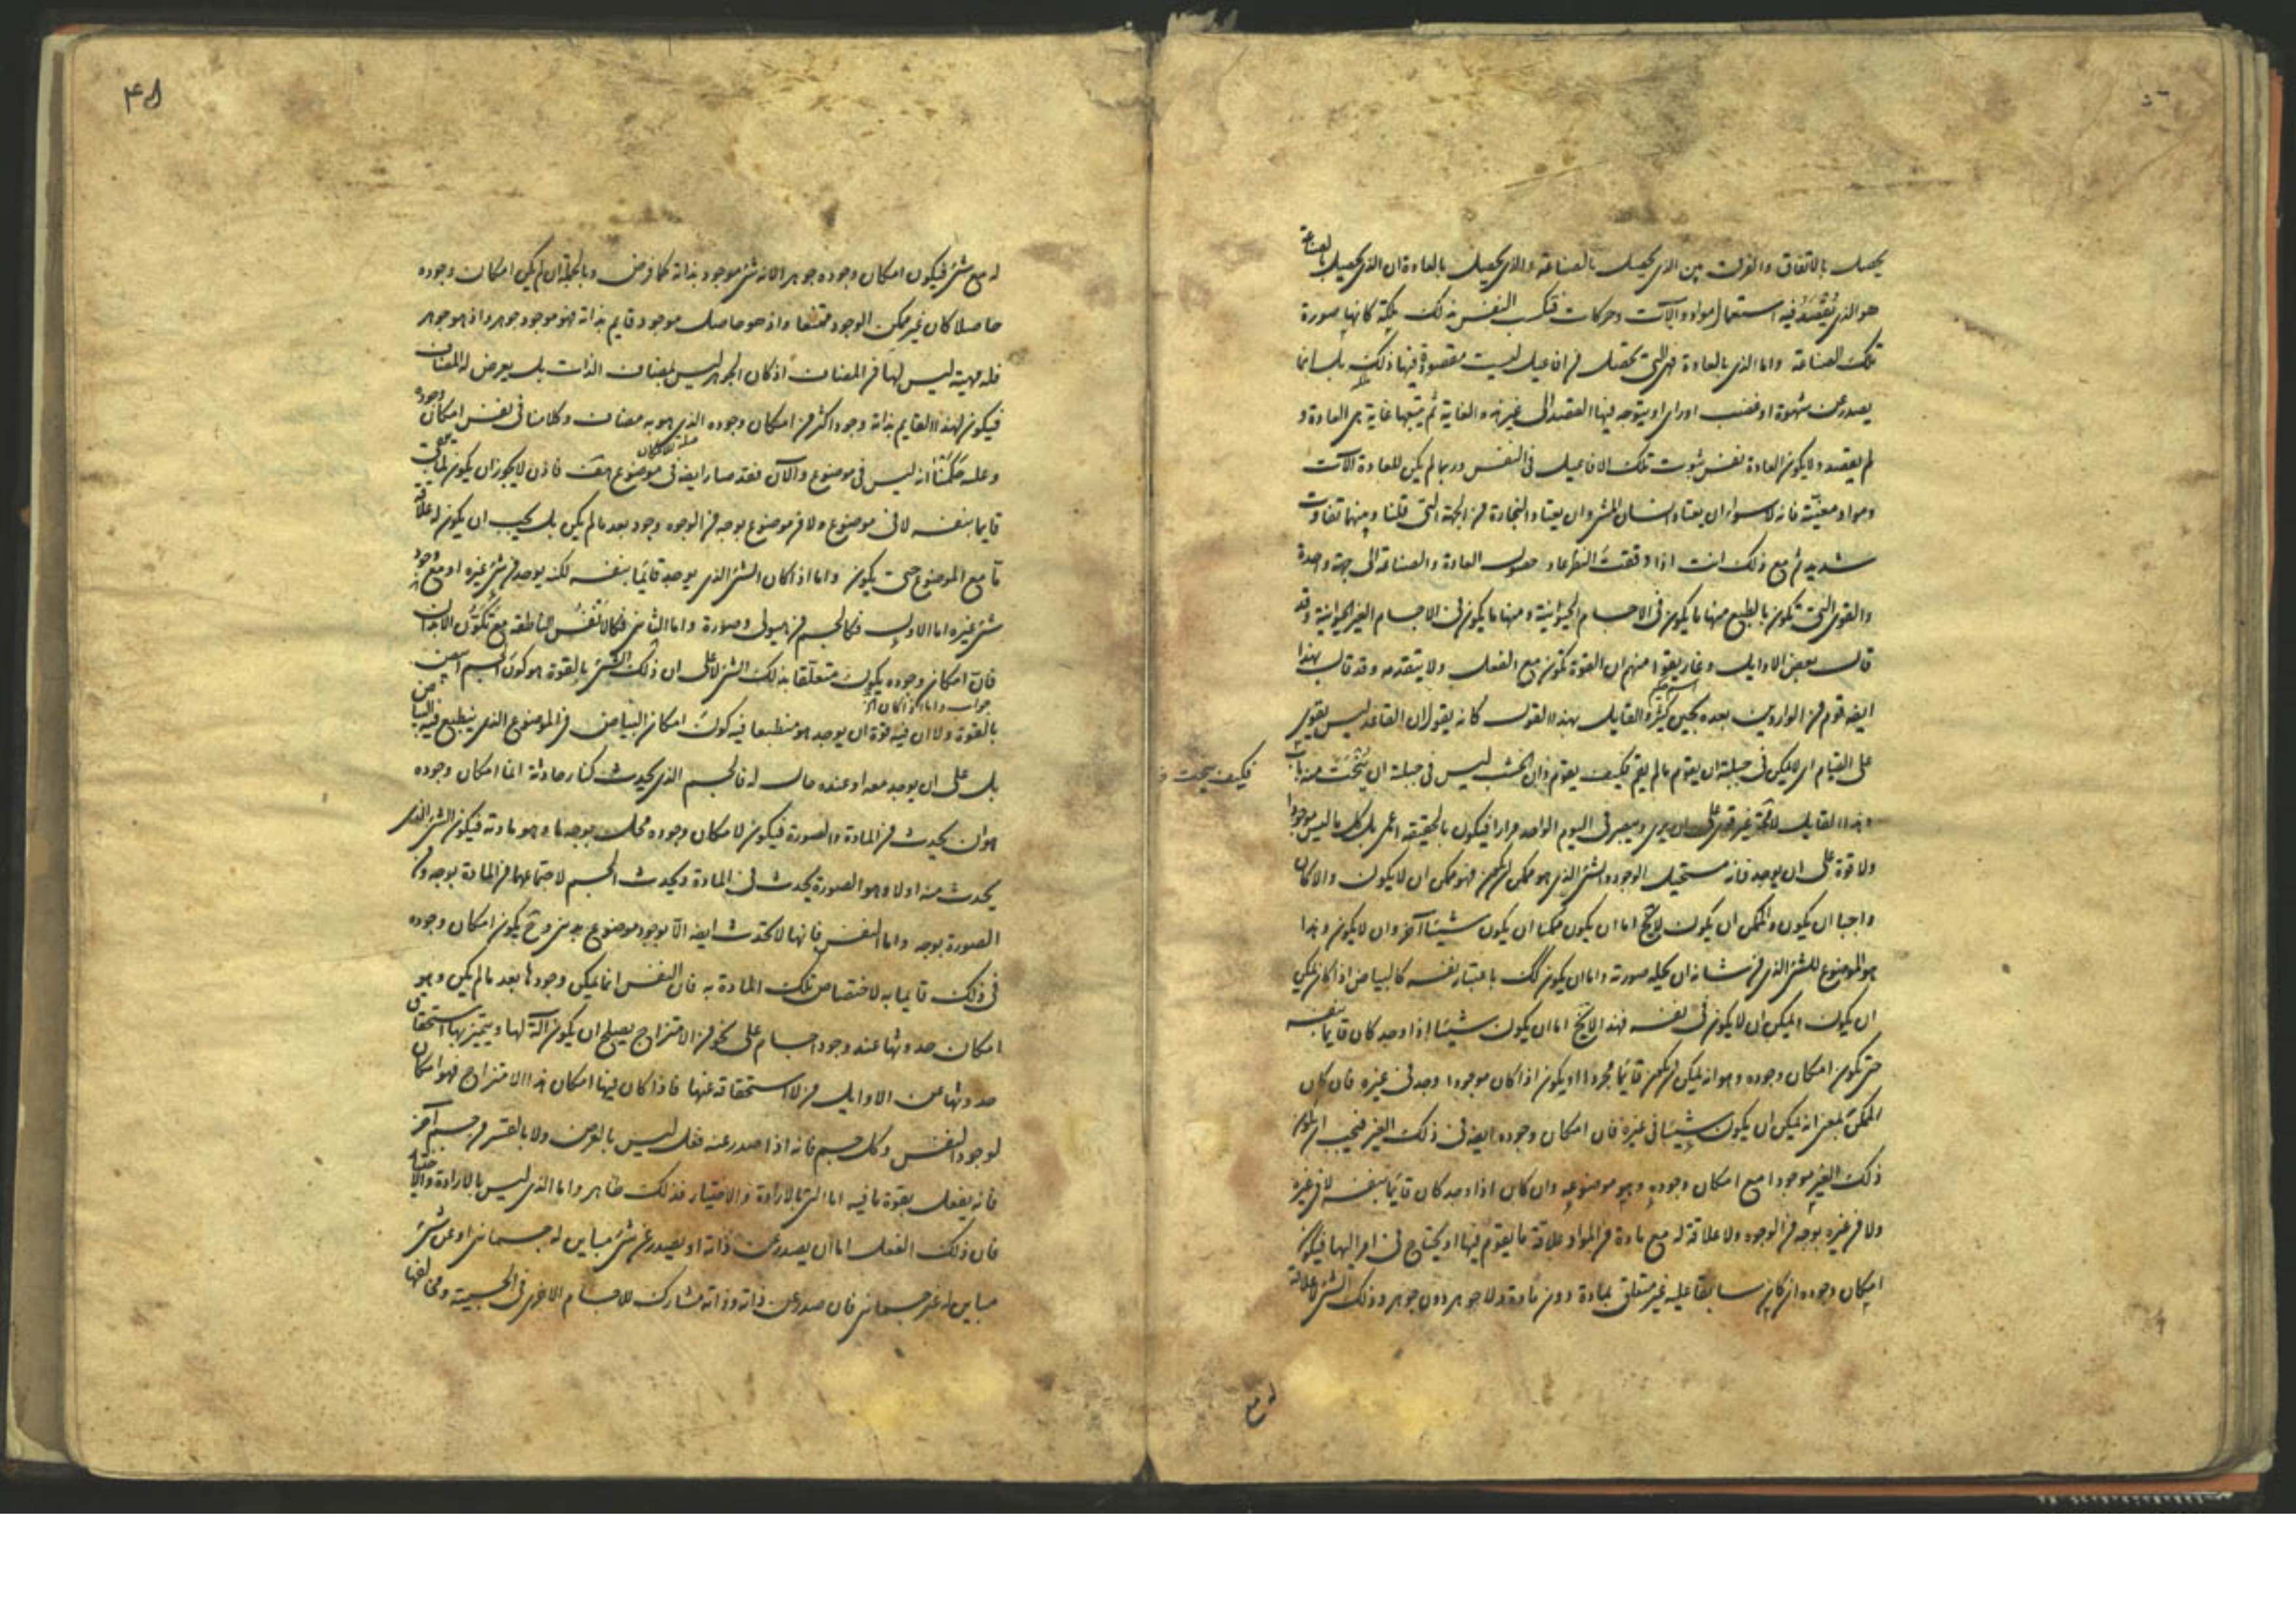 يحصل بالاتفاق والفرق بين الذى يحصل بالصناعة والذى يحصل بالعادة ان الذى يحصل بالصناعة
هو الذى يقصد فيه استعمال مواد وآلات وحركات فتكسب النفس بذلك ملكة كانها صورة
تلك الصناعة واما الذى بالعادة فهو التى تحصل من افاعيل ليست مقصودة فيها ذلك بل انما
يصدر عن شهوة او غضب او راى او يتوجه فيها القصد الى غير هذه الغاية ثم يتبعها غاية هى العادة و
لم يقصد ولا يكون العادة نفس ثبوت تلك الافاعيل فى النفس وربما لم يكن للعادة آلات
ومواد معينة فانه لا سواء ان يعتاد انسان المشى وان يعتاد التجارة من الجهة التى قلنا وبينهما تفاوت
شديد ثم مع ذلك انت اذا دققت النظر عاد حصول العادة والصناعة الى جهة واحدة
والقوى التى تكون بالطبع منها ما يكون فى الاجسام الحيوانية ومنها ما يكون فى الاجسام الغير الحيوانية وقد
قال بعض الاوايل وغاريقوا منهم ان القوة تكون مع الفعل ولا يتقدمه وقد قال بهذا
ايضه قوم من الواردين بعده بحين كثير والقايل بهذا القول كانه يقول ان القاعد ليس يقوى
على القيام اى لا يمكن فى جبلته ان يقوم ما لم يقم فكيف يقوم وان الخشب ليس فى جبلته ان ينحت منه باب
فكيف ينحت
وهذا القايل لا محة غير قوى على ان يرى ويبصر فى اليوم الواحد مرارا فيكون بالحقيقة اعمى بل كل ما ليس موجودا
ولا قوة على ان يوجد فانه مستحيل الوجود والشئ الذى هو ممكن ان يكون فهو ممكن ان لا يكون والا كان
واجبا ان يكون والممكن ان يكون لا يخ اما ان يكون ممكنا ان يكون شيئا آخر وان لا يكون وهذا
هو الموضوع للشئ الذى من شانه ان يحله صورته واما ان يكون كك باعتبار نفسه كالبياض اذا كان يمكن
ان يكون ويمكن ان لا يكون فى نفسه فهذا لا يخ اما ان يكون شيئا اذا وجد كان قايما بنفسه
حتى يكون امكان وجوده هو انه يمكن ان يكون قايما مجردا او يكون اذا كان موجودا وجد فى غيره فان كان
الممكن بمعنى انه يمكن ان يكون شيئا فى غيره فان امكان وجوده ايضه فى ذلك الغير فيجب ان يكون
ذلك الغير موجودا مع امكان وجوده وهو موضوعه وان كان اذا وجد كان قايما بنفسه لا فى غيره
ولا من غيره بوجه من الوجوه ولا علاقة له مع مادة من المواد علاقة ما يقوم فيها او يحتاج فى امر اليها فيكون
امكان وجوده ان كان سابقا عليه غير متعلق بمادة دون مادة ولا جوهر دون جوهر وذلك الشئ لا علاقة
له مع
له مع شئ فيكون امكان وجوده جوهرا لانه شئ موجود بذاته كما فرض وبالجملة ان لم يكن امكان وجوده
حاصلا كان غير ممكن الوجود ممتنعا واذ هو حاصل موجود قايم بذاته فهو موجود جوهر واذ هو جوهر
فله مهية ليس لها من المضاف اذ كان الجوهر ليس بمضاف الذات بل يعرض له المضاف
فيكون لهذا القايم بذاته وجود اكثر من امكان وجوده الذى هو به مضاف وكلامنا فى نفس امكان وجوده
وعليه حكمنا انه ليس فى موضوع والآن فقد صار ايضه فى موضوع هف فاذن لا يجوز ان يكون لما يبقى
قايما بنفسه لا فى موضوع ولا من موضوع بوجه من الوجوه وجود بعد ما لم يكن بل يجب ان يكون له علاقة
ما مع الموضوع حتى يكون واما اذا كان الشئ الذى يوجد قايما بنفسه لكنه يوجد من شئ غيره او مع وجود
شئ غيره اما الاول فكالجسم من هيولى وصورة واما الثانى فكالانفس الناطقة مع تكون الابدان
فان امكان وجوده يكون متعلقا بذلك الشئ لا على ان ذلك الشئ بالقوة هو كون الجسم ابيض
جواب واما اذا كان
بالقوة ولا ان فيه قوة ان يوجد هو منطبعا فيه كون امكان البياض فى الموضوع الذى ينطبع فيه البياض
بل على ان يوجد معه او عند حال له فالجسم الذى يحدث كنار حادثة انما امكان وجوده
هو ان يحدث من المادة والصورة فيكون لامكان وجوده محل بوجه ما وهو مادته فيكون الشئ الذى
يحدث منه اولا وهو الصورة يحدث فى المادة ويحدث الجسم لاجتماعهما من المادة بوجه ومن
الصورة بوجه واما النفس فانها لا تحدث ايضه الا بوجود موضوع بدنى وح يكون امكان وجوده
فى ذلك قايما به لاختصاص تلك المادة به فان النفس انما يمكن وجودها بعد ما لم يكن وهو
امكان حدوثها عند وجود اجسام على نحو من الامتزاج يصلح ان يكون آلة لها ويتميز بها استحقاق
حدوثها من الاوايل من لا استحقاقه عنها فاذا كان فيها امكان هذا الامتزاج فهو امكان
لوجود النفس وكل جسم فانه اذا صدر عنه فعل ليس بالعرض ولا بالقسر من جسم آخر
فانه يفعل بقوة ما فيه اما الذى بالارادة والاختيار فذلك ظاهر واما الذى ليس بالارادة والاختيار
فان ذلك الفعل اما ان يصدر عن ذاته او يصدر عن شئ مباين له جسمانى او عن شئ
مباين له غير جسمانى فان صدر عن ذاته وذاته مشارك للاجسام الاخرى فى الجسمية ومخالفها